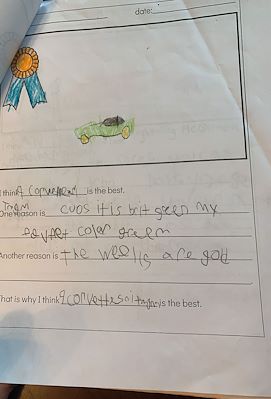 date:
I think A is the best.
One reason is cuos it is brit green my
color green
Another reason is the wells are god
That is why I think is the best.